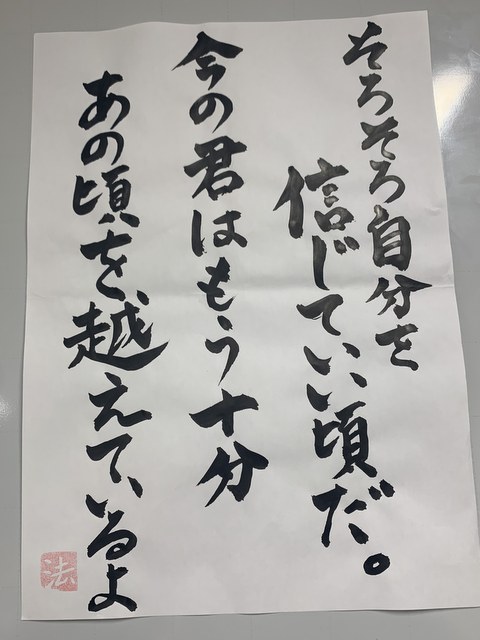 そろそろ自分を
信じていい頃だ。
今の君はもう十分
あの頃を越えているよ
法